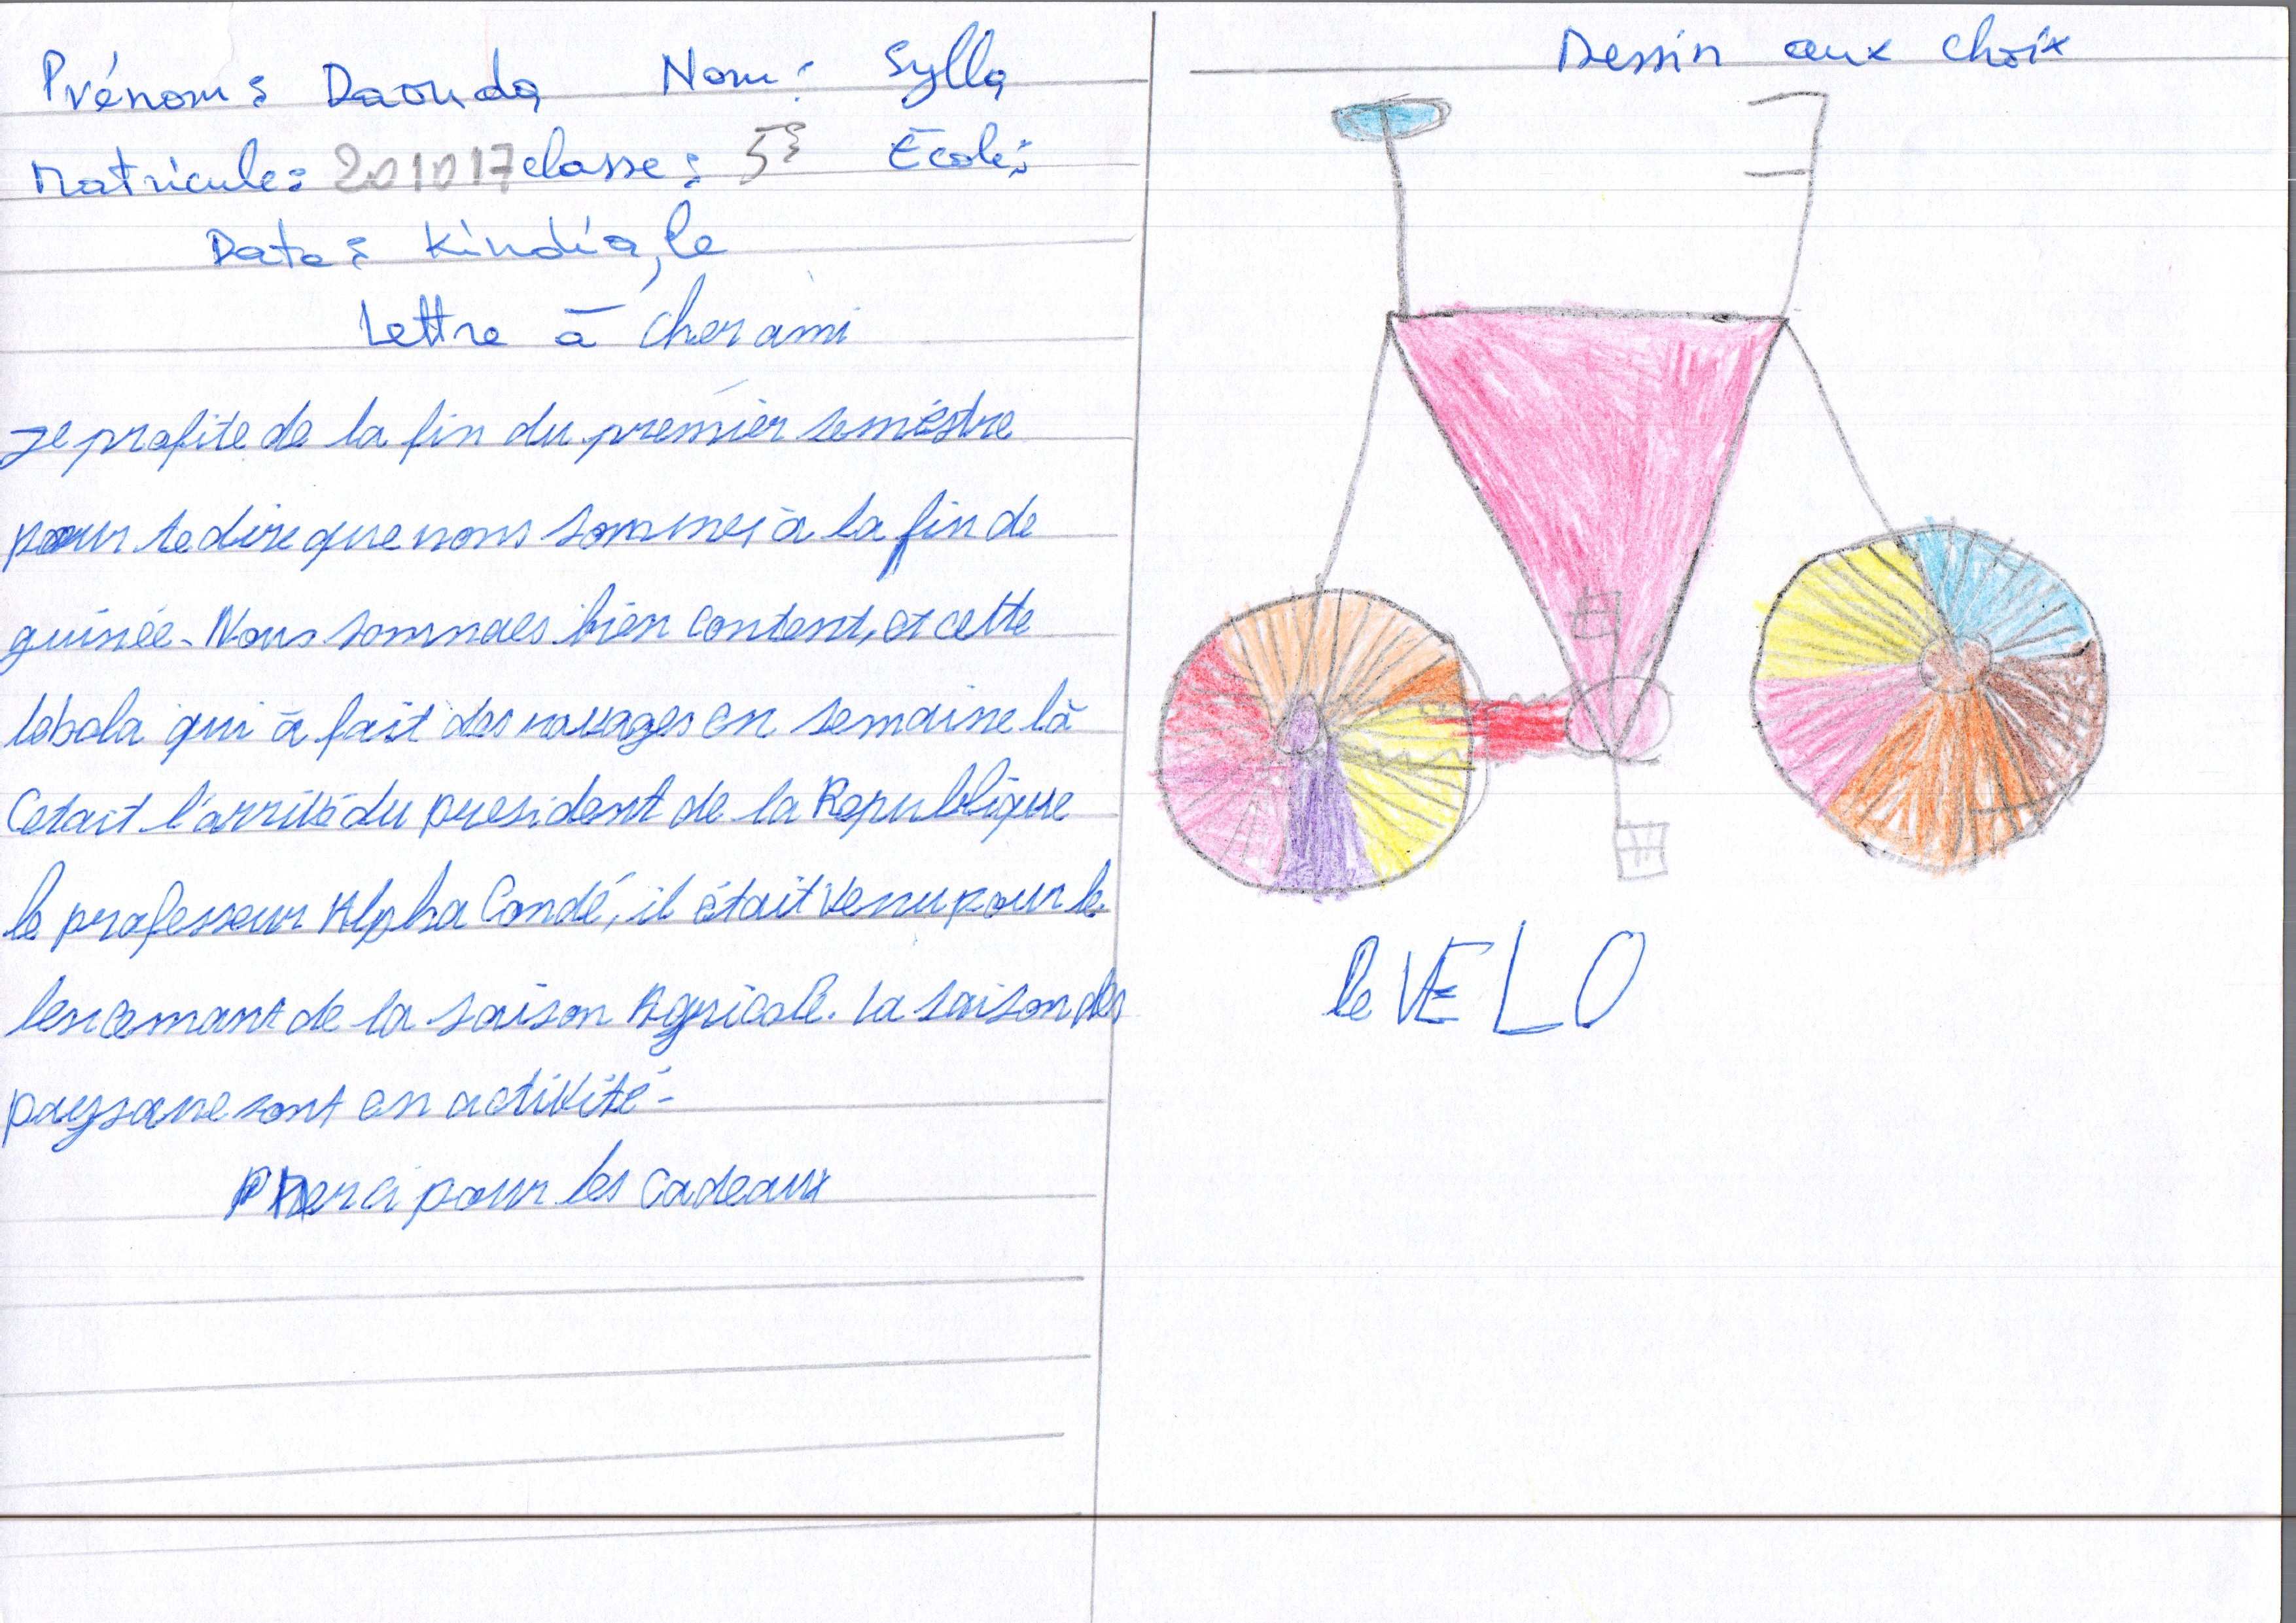 Prénom: Daouda Nom: Sylla
Matricule: 201017 classe: 5e Ecole:
Date: Kindia, le
Lettre à cher ami
Je profite de la fin du premier seméstre
pour te dire que nous sommes à la fin de
guinée. Nous sommaes bien content, et cette
qui à fait des en semaine là
Cetait l'arrivé du president de la Republique
le professeur Alpha Condé, il était venu pour le
lencemant de la saison Agricole. La saison des
paysane sont en activité-
Merci pour les cadeaux
Dessin aux choix
le VELO